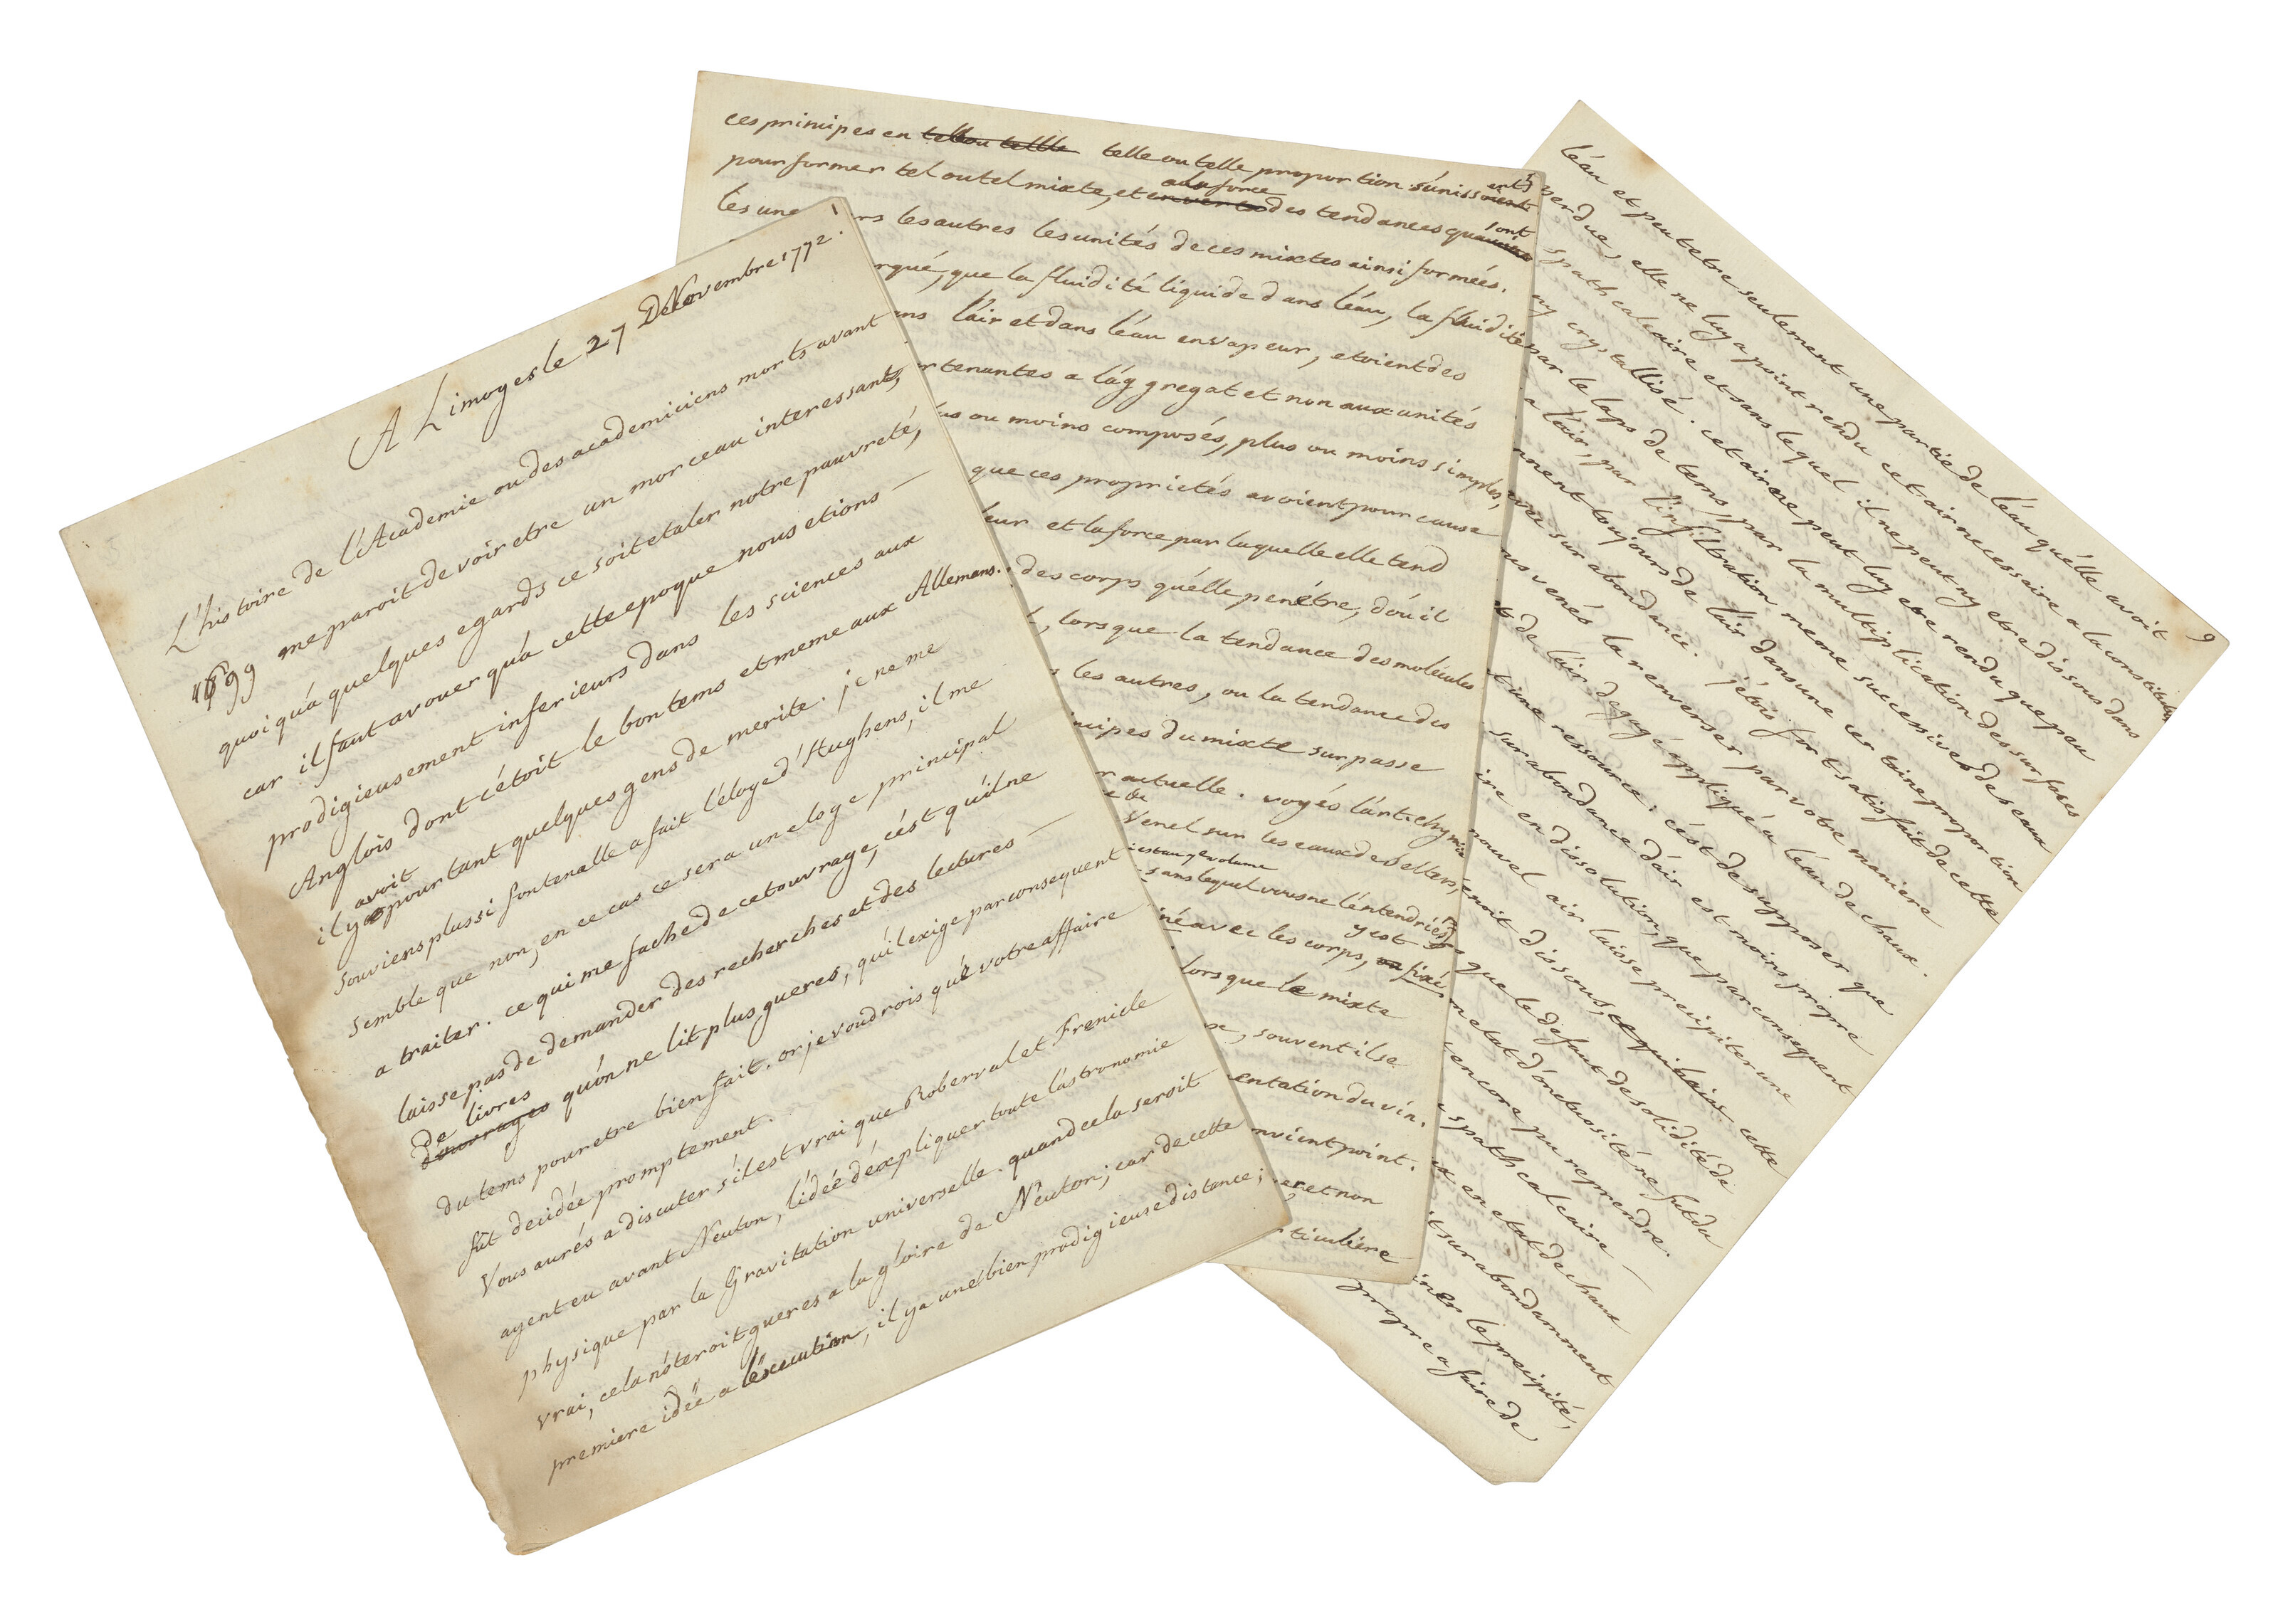 A Limoges le 27 De Novembre 1772.
L'histoire de l'Academie ou des academiciens morts avant
1699 me paroit devoir etre un morceau interessant,
quoiqu'a quelques egards ce soit etaler notre pauvreté,
car il faut avouer qu'a cette epoque nous etions —
prodigieusement inferieurs dans les sciences aux
Anglois dont c'étoit le bon tems et meme aux Allemans..
il y avoit pourtant quelques gens de merite. je ne me
souviens plus si fontenelle a fait l'eloge d'Hughens, il me
semble que non, en ce cas ce sera un eloge principal
a traiter. ce qui me fache de cet ouvrage, c'est qu'il ne
laisse pas de demander des recherches et des lectures —
de livres
d'ouvrages qu'on ne lit plus gueres, qu'il exige par consequent
du tems pour etre bien fait. or je voudrois que votre affaire
fût decidée promptement.
Vous aurés a discuter s'il est vrai que Roberval et Frenicle
ayent eu avant Neuton, l'idée d'expliquer toute l'astronomie
physique par la Gravitation universelle. quand cela seroit
vrai, cela n'oteroit gueres a la gloire de Neuton; car de cette
premiere idée a l'execution, il y a une bien prodigieuse distance;
ces principes en tell ou tellle telle ou telle proportion s'unissent
pour former tel ou tel mixte, et a la force des tendances qu'ont
les unes vers les autres les unités de ces mixtes ainsi formées.
rqué, que la fluidité liquide dans l'eau, la fluidité
ans l'air et dans l'eau en vapeur, etoient des
rtenantes a l'aggregat et non aux unités
lus ou moins composés, plus ou moins simples,
que ces proprietés avoient pour cause
leur et la force par laquelle elle tend
des corps qu'elle penétre, d'où il
, lorsque la tendance des molécules
s les autres, ou la tendance des
ncipes du mixte surpasse
r actuelle. voyés l'art. chymie
Venel sur les eaux de Selters,
volume
sans lequel vous ne l'entendriés
iné avec les corps, y est fixé
lorsque le mixte
, souvent il se
entation du vin.
nvient point.
er et non
rticuliere
9
l'eau et peut etre seulement une partie de l'eau qu'elle avoit
perdue, elle ne luy a point rendu cet air necessaire a la constitution
spath calcaire et sans lequel il ne peut ny etre dissous dans
ny crystallisé. cet air ne peut luy etre rendu que peu
par le laps de tems, par la multiplication des surfaces
a l'air, par l'infiltration meme successive des eaux
nnent toujours de l'air dans une certaine proportion
surabondance. j'etois fort satisfait de cette
us venés la renverser par votre maniere
de l'air degagé appliqué a l'eau de chaux.
une ressource; c'est de supposer que
surabondance d'air est moins propre
ire en dissolution, que par consequent
nouvel air laisse precipiter une
enoit dissous, cette
que le defaut de solidité de
n etat d'onctuosité ne fut du
encore pu reprendre.
spath calcaire —
en etat de chaux
surabondamment
iner le precipité,
propre a faire de